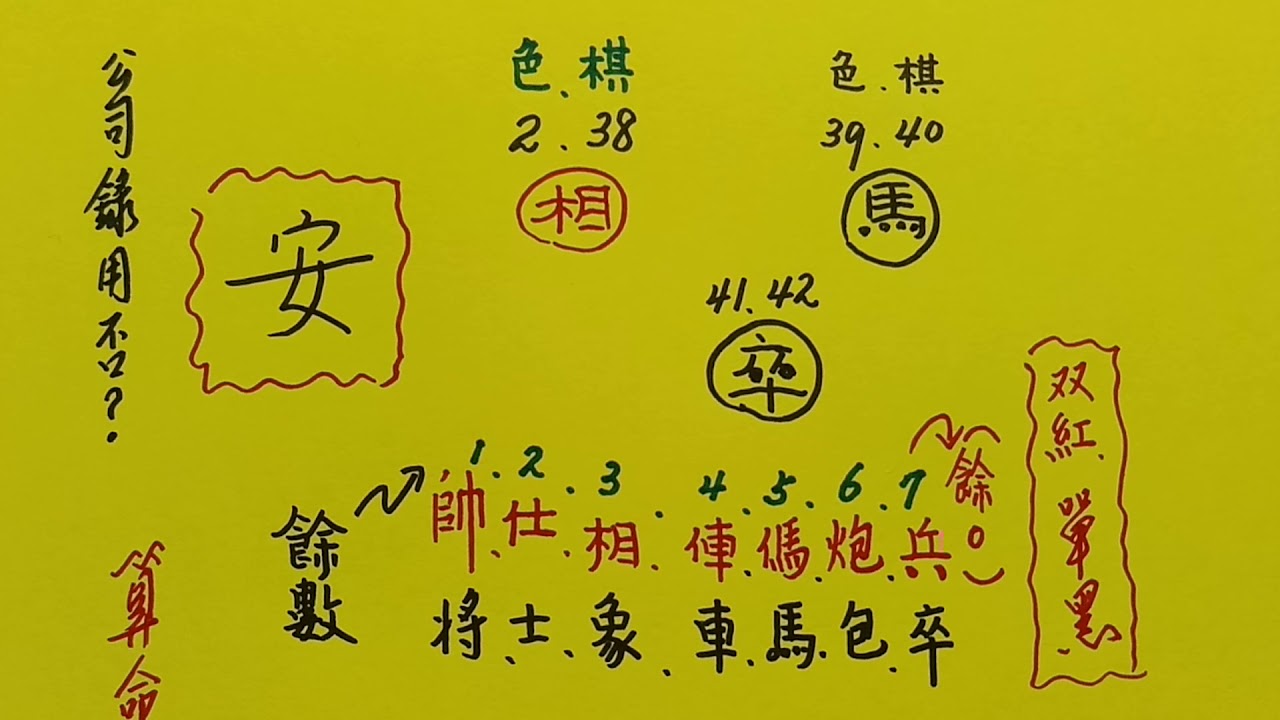 公司錄用不?
算命
安
色.棋
2.38
相
色.棋
39.40
馬
41.42
卒
餘數
1.2.3.4.5.6.7
帥.仕.相.俥.傌.炮.兵
(餘0)
将.士.象.車.馬.包.卒
双紅.單黑.